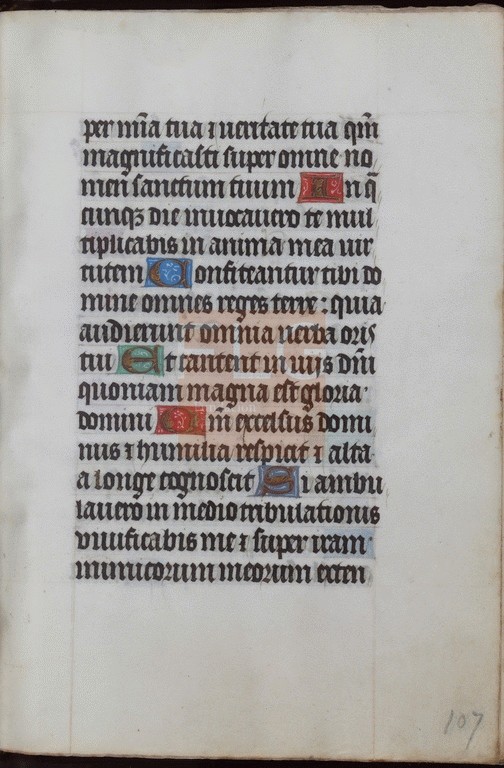 per mīa tua ⁊ ueritate tua qm̄
magnificasti super omne no
men sanctum tuum In q̄
cunqꝫ die inuocauero te mul
tiplicabis in anima mea uir
tutem Confiteantur tibi do
mine omnes reges terre : quia
audierunt omnia uerba oris
tui Et cantent in uijs dn̄i
quoniam magna est gloria
domini Qm̄ excelsus domi
nus ⁊ humilia respicit ⁊ alta
a longe cognoscit Si ambu
lauero in medio tribulationis
uiuificabis me ⁊ super iram
inimicorum meorum exten
107